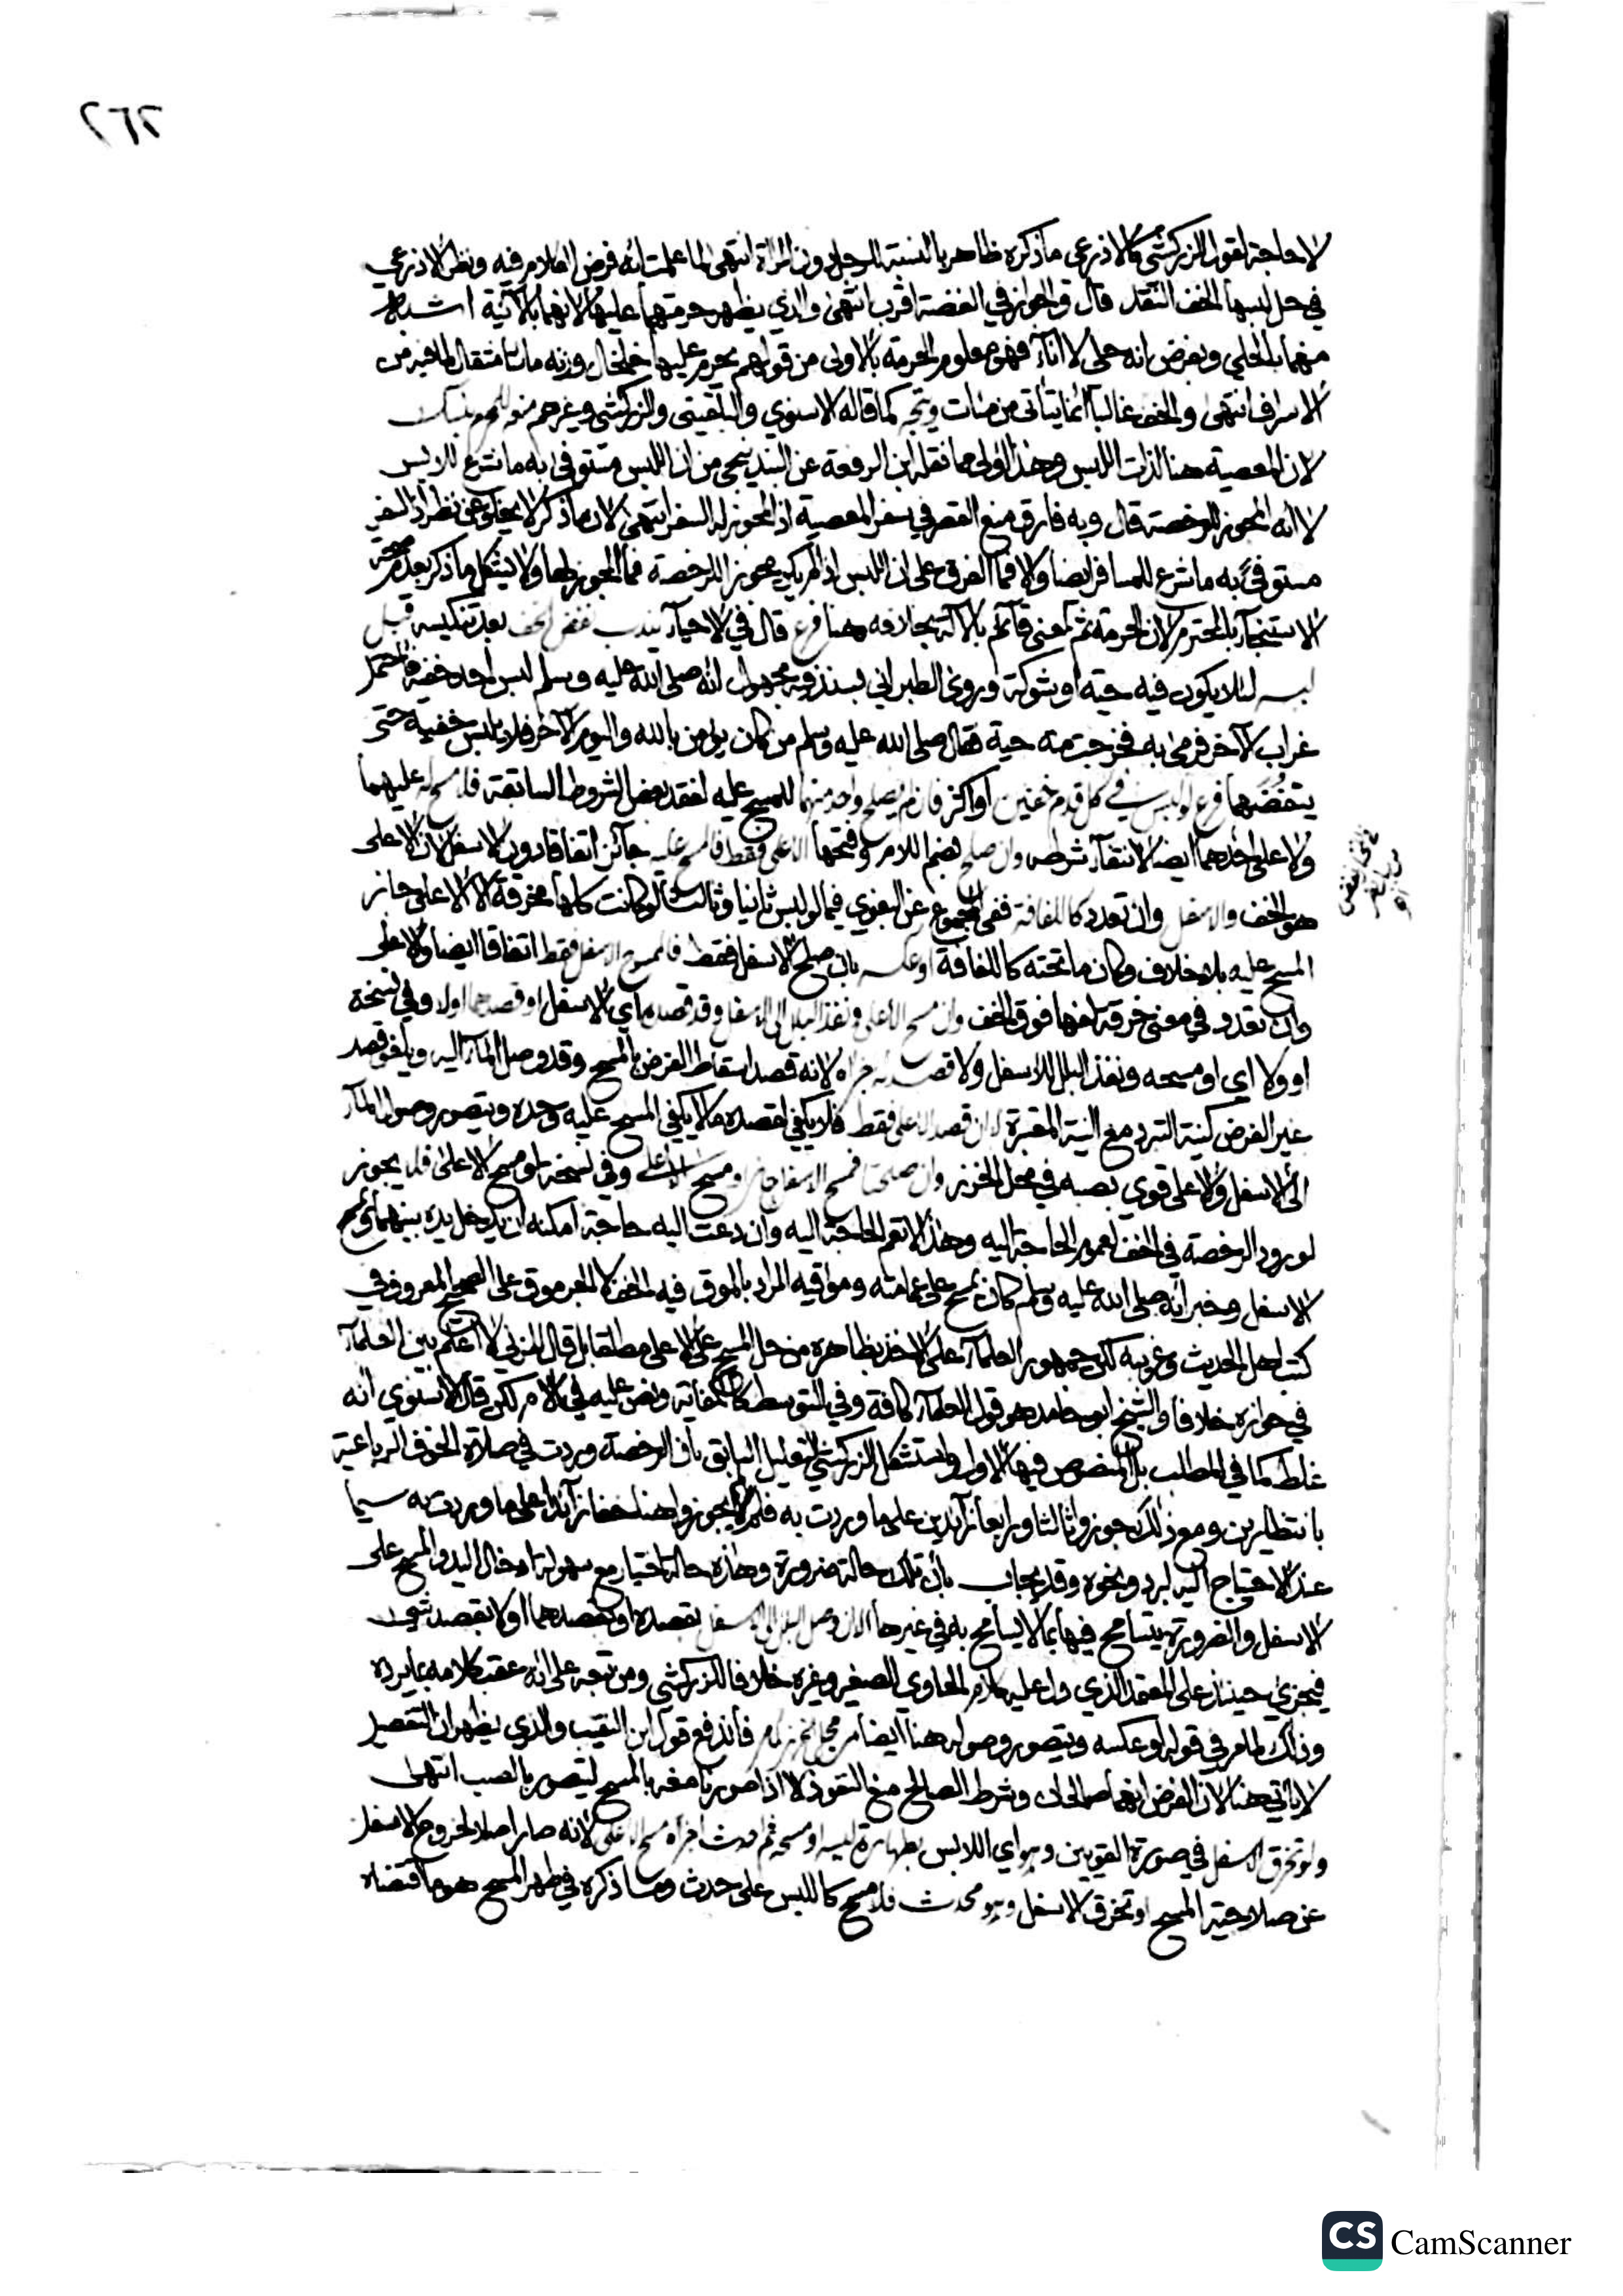 ٢٦٢
لا حاجة لقول الزركشي كالاذرعي ما ذكره ظاهر بالنسبة للرجل دون المرأة انتهى لما علمت انه فرض الكلام فيه ونظر الاذرعي
في حل لبسها الخف النقد قال والجواز في الفضة اقرب انتهى والذي يظهر حرمتهما عليها لانهما بالآنية اشبه
منهما بالحلي وبفرض انه حلي لا اناء فهو معلوم الحرمة بالاولى من قولهم يحرم عليها خلخال وزنه مائتا مثقال لما فيه من
الاسراف انتهى والخف غالبا انما يتأتى من مئات ويتجه كما قاله الاسنوي والبلقيني والزركشي وغيرهم منع
لان المعصية هنا لذات اللبس وهذا اولى مما نقله ابن الرفعة عن البندنيجي من ان اللبس مستوفى به ما شرع للابس
لا انه المجوز للرخصة قال وبه فارق منع القصر في سفر المعصية اذ المجوز له السفر انتهى لان ما ذكر لا يخلو عن نظر اذ السفر
مستوفى به ما شرع للمسافر ايضا والا فما الفرق على ان اللبس اذا لم يكن مجوزا للرخصة فما المجوز لها ولا يشكل ما ذكر بعدم صحة
الاستنجاء بالمحترم لان الحرمة ثم لمعنى قائم بالآلة بخلافه هنا فرع قال في الاحياء يندب نفض الخف بعد تنكيسه قبل
لبسه لئلا يكون فيه حية او شوكة وروى الطبراني بسند فيه مجهول انه صلى الله عليه وسلم لبس احد خفيه فاحتمل
غراب الآخر فرمى به فخرجت منه حية فقال صلى الله عليه وسلم من كان يؤمن بالله واليوم الآخر فلا يلبس خفيه حتى
ينفضهما فرع لو لبس في كل قدم خفين او اكثر فان لم يصلح واحد منهما للمسح عليه لفقد بعض الشروط السابقة فلا مسح له عليهما
ولا على احدهما ايضا لانتفاء شرطه وان صلح بضم اللام وفتحها الاعلى فقط فالمسح عليه جائز اتفاقا دون الاسفل لان الاعلى
هو الخف والاسفل وان تعدد كاللفافة ففي المجموع عن البغوي فيما لو لبس ثانيا وثالثا لو كانت كلها مخرقة الا الاعلى جاز
المسح عليه بلا خلاف وكان ما تحته كاللفافة او عكسه بان صلح الاسفل فقط فالممسوح الاسفل فقط اتفاقا ايضا والاعلى
وان تعدد في معنى خرقة لفها فوق الخف وان مسح الاعلى ونفذ البلل الى الاسفل وقد قصده اي الاسفل او قصدهما اولا وفي نسخة
او ولا اي او مسحه ونفذ البلل للاسفل ولا قصد له اجزاه لانه قصد اسقاط الفرض بالمسح وقد وصل الماء اليه ويلغو قصد
غير الفرض كنية التبرد مع النية المعتبرة لا ان قصد الاعلى فقط فلا يكفي لقصده ما لا يكفي المسح عليه وحده ويتصور وصول الماء
الى الاسفل والاعلى قوي بصبه في محل الخرز وان صلحا فمسح الاسفل جاز او مسح الاعلى وفي نسخة لو مسح الاعلى فلا يجوز
لورود الرخصة في الخف لعموم الحاجة اليه وهذا لا تعم الحاجة اليه وان دعت اليه حاجة امكنه ان يدخل يده بينهما ويمسح
الاسفل وخبر انه صلى الله عليه وسلم كان يمسح على عمامته وموقيه المراد بالموق فيه الخف لا الجرموق على الصحيح المعروف في
كتب اهل الحديث وغريبه لكن جمهور العلماء على الاخذ بظاهره من حل المسح على الاعلى مطلقا بل قال المزني لا اعلم بين العلماء
في جوازه خلافا والشيخ ابو حامد هو قول العلماء كافة وفي التوسط كالكفاية ونص عليه في الام لكن قال الاسنوي انه
غلط كما في المطلب بل المنصوص فيها الاول واستشكل الزركشي التعليل السابق بان الرخصة وردت في صلاة الخوف الرباعية
بانتظارين ومع ذلك جوزوا ثالثا ورابعا زائدين على ما وردت به فلم لا يجوزوا هنا خفا زائدا على ما وردت به سيما
عند الاحتياج اليه لبرد ونحوه وقد يجاب بان تلك حالة ضرورة وهذه حالة اختيار مع سهولة ادخال اليد والمسح على
الاسفل والضرورة يتسامح فيها بما لا يسامح به في غيرها الا ان وصل البلل الى الاسفل بقصده او بقصدهما او لا بقصد شيء
فيجزئ حينئذ على المعتمد الذي دل عليه كلام الحاوي الصغير وغيره خلافا للزركشي ومن تبعه على انه عقب كلامه بما يرده
وذلك لما مر في قوله او عكسه ويتصور وصوله هنا ايضا من محل الخرز كما مر فاندفع قول ابن النقيب والذي يظهر ان التفصيل
لا يأتي هنا لان الفرض انهما صالحان وشرط الصالح منع النفوذ لا اذا صور نامعه بالمسح ليتصور بالصب انتهى
ولو تخرق الاسفل في صورة القويين وهو اي اللابس بطهارة لبسه او مسحه ثم احدث اجزاه مسح الاعلى لانه صار اصلا لخروج الاسفل
عن صلاحيته للمسح او تخرق الاسفل وهو محدث فلا مسح كاللبس على حدث وما ذكره في طهر المسح هو ما اقتضاه
CS CamScanner